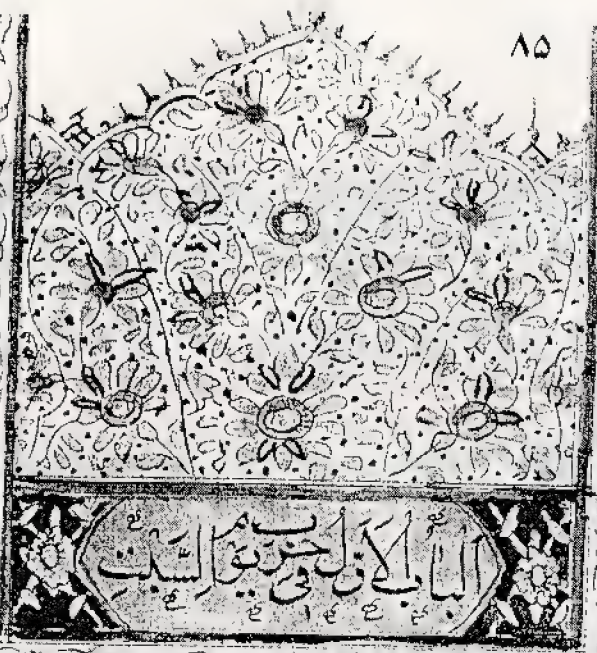 ۸۵
اَلْبَابُ الْاَوَّلُ فِي حِزْبِ يَوْمِ السَّبْتِ